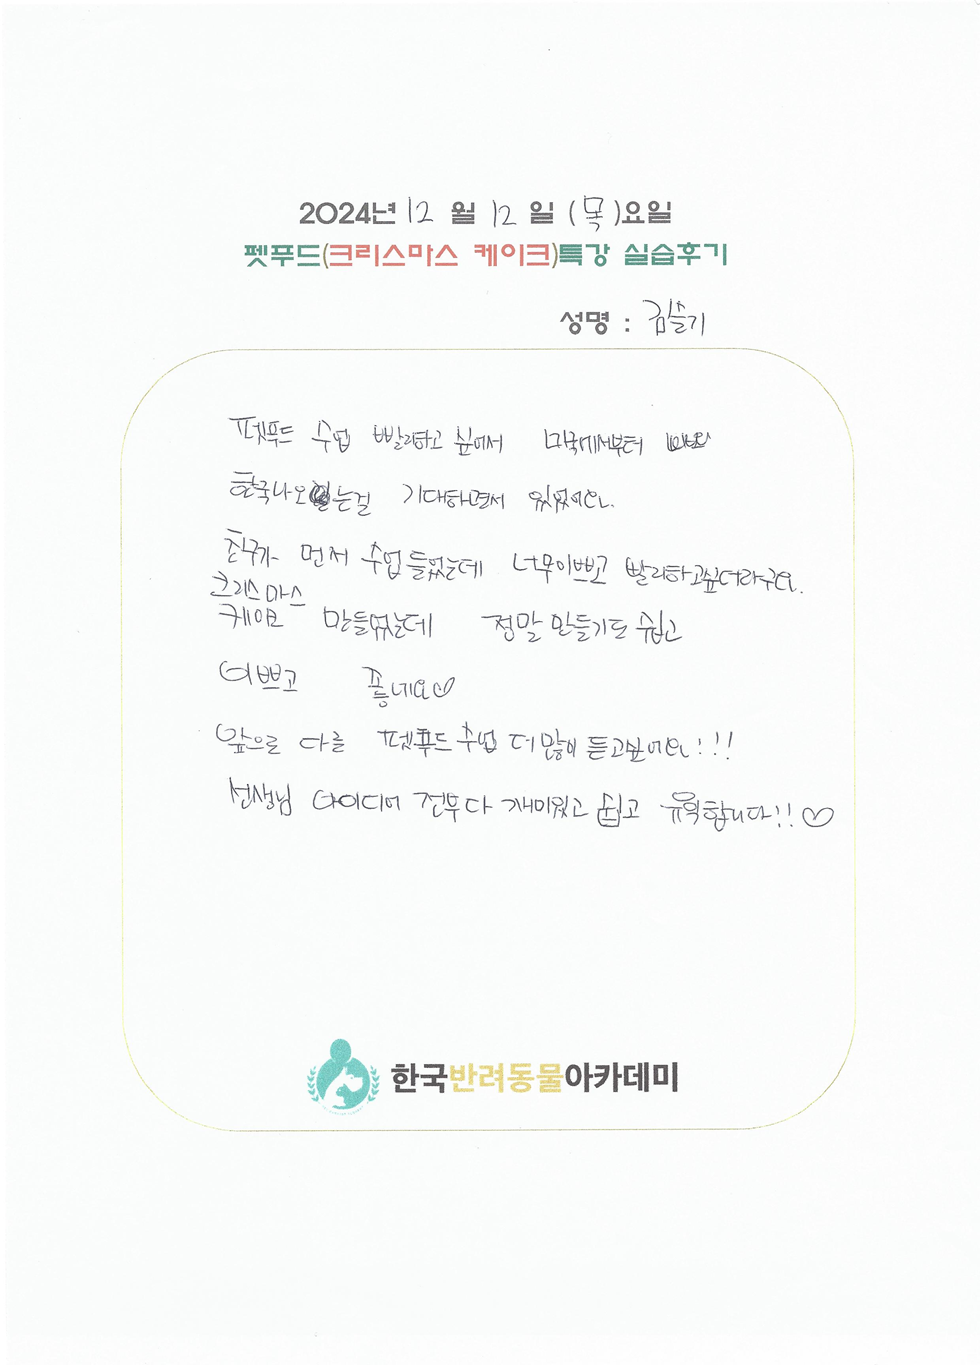 2024년 12 월 12 일 (목)요일
펫푸드(크리스마스 케이크)특강 실습후기
성명 : 김슬기
펫푸드 수업 빨리하고 싶어서 미국에서부터
한국나오는걸 기대하면서 있었어요.
친구가 먼저 수업 들었는데 너무이쁘고 빨리하고싶더라구요.
크리스마스
케이크 만들었는데 정말 만들기도 쉽고
이쁘고 좋네요♡
앞으로 다른 펫푸드 수업 더 많이 듣고싶어요!!!
선생님 아이디어 전부다 재미있고 쉽고 유익합니다!!♡
한국반려동물아카데미